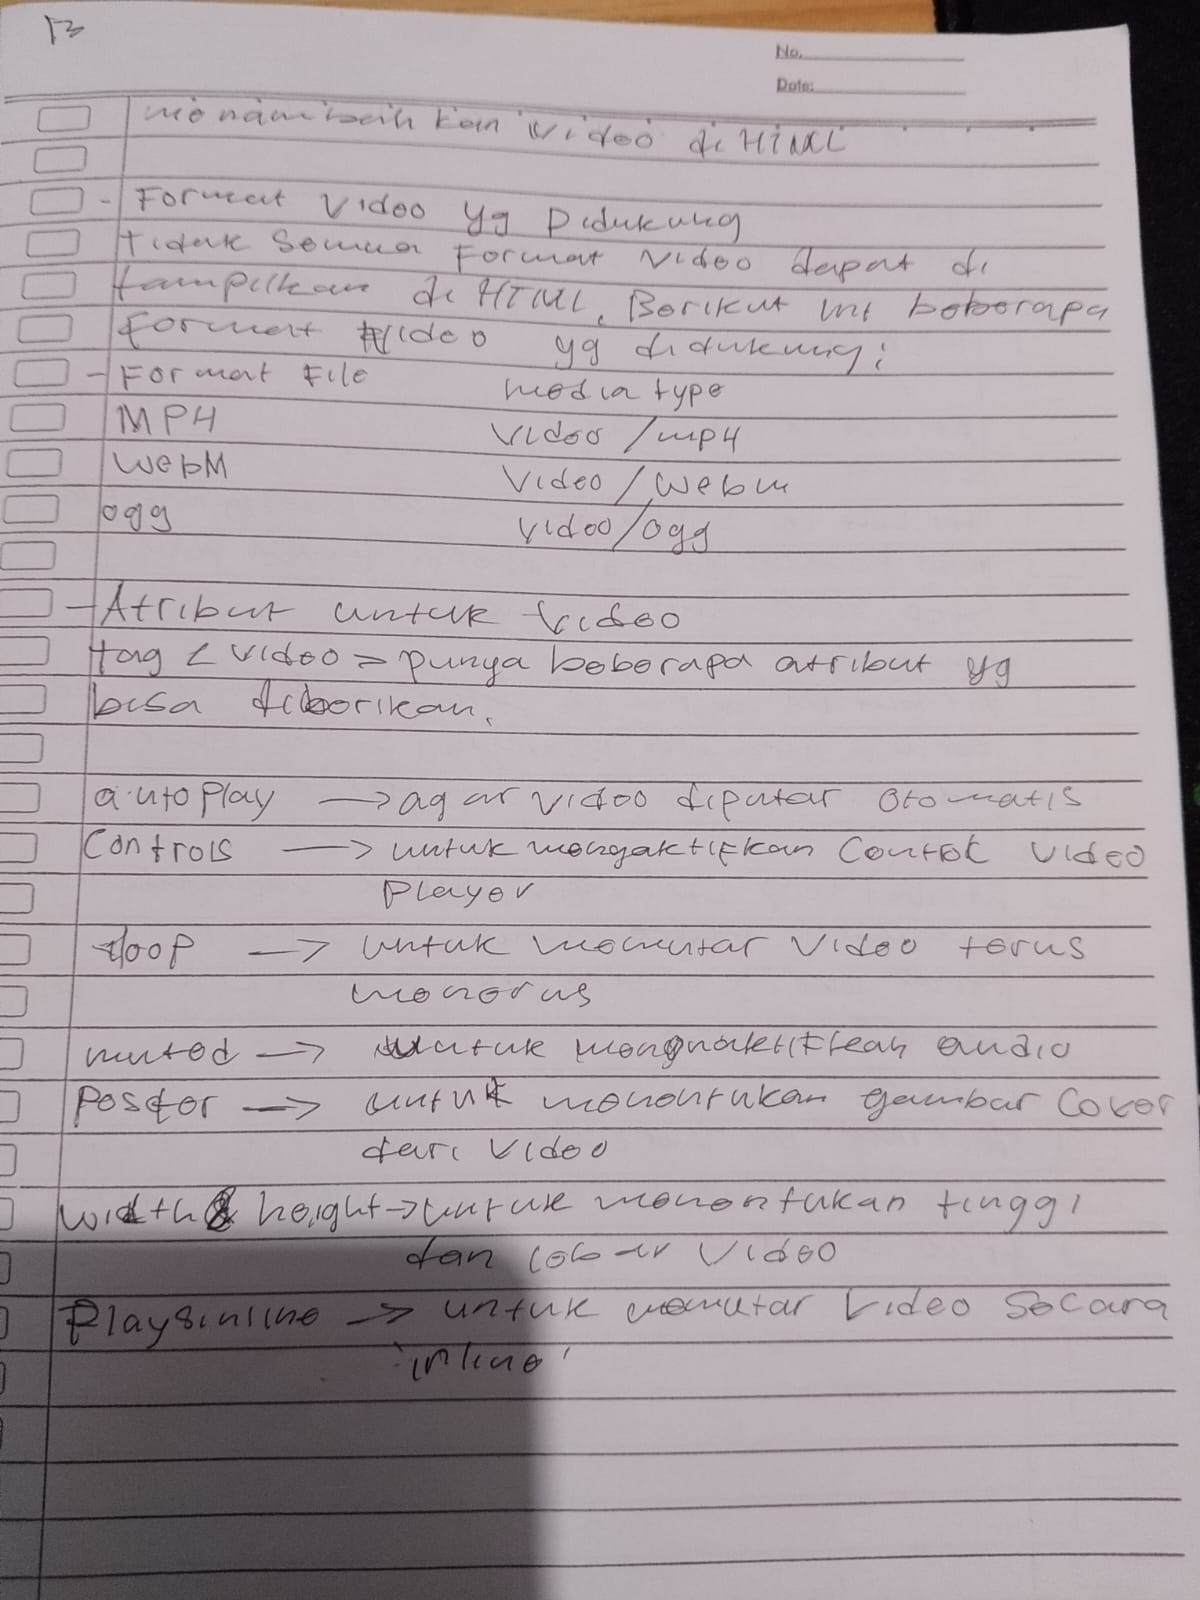 13
No.
Date:
menambahkan video di HTML
- Format Video yg Didukung
tidak semua Format video dapat di
tampilkan di HTML. Berikut ini beberapa
format video yg didukung:
- Format File media type
MP4 video/mp4
WebM Video/webm
ogg video/ogg
- Atribut untuk video
tag <video> punya beberapa atribut yg
bisa diberikan.
autoplay -> agar video diputar otomatis
Controls -> untuk mengaktifkan Control video
Player
loop -> untuk memutar video terus
menerus
muted -> untuk mengnaktifkan audio
Poster -> untuk menentukan gambar Cover
dari video
width & height -> untuk menentukan tinggi
dan lebar video
Playsinline -> untuk memutar video secara
'inline'